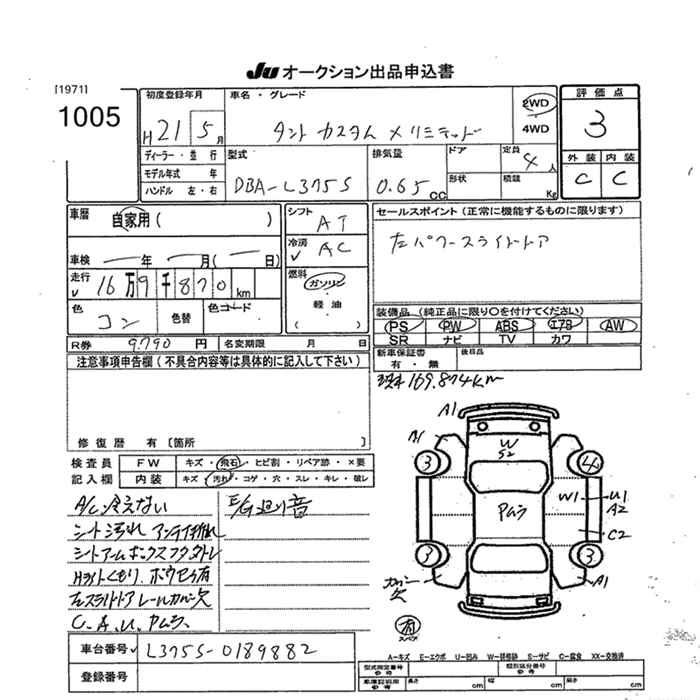 JU オークション出品申込書
[1971]
1005
初度登録年月
H 21 年 5 月
車名・グレード
タント カスタム メリミテッド
2WD
4WD
評価点
3
外装 内装
C C
ディーラー・並行
モデル年式 年
ハンドル 左・右
型式
DBA-L375S
排気量
0.65 CC
ドア
形状
定員
4 人
積載
Kg
車歴
自家用( )
車検 ― 年 ― 月( ― 日)
走行
16万9千870 km
色
コン
色替
色コード
シフト
AT
冷房
AC
燃料
ガソリン
軽油
( )
セールスポイント(正常に機能するものに限ります)
左パワースライドドア
装備品(純正品に限り○を付けてください)
PS PW ABS エアB AW
SR ナビ TV カワ
R券 9,790 円 名変期限 月 日
新車保証書
有・無
後日品
現車169,874km
注意事項申告欄(不具合内容等は具体的に記入して下さい)
修復歴 有〔箇所 〕
検査員
記入欄
FW キズ・飛石・ヒビ割・リペア跡・×要
内装 キズ・汚れ・コゲ・穴・スレ・キレ・破レ
A/C冷えない
シート汚れ アンテナ折れ
シートアームボックスフタ欠トレ
Hライトくもり、ホウセキ有
左スライドドアレールカバー欠
C、A、U、Pムラ、
E/G廻り音
A1
A1
W
S2
3
4
Pムラ
W1
U1
A2
C2
3
3
カバー
欠
A1
有
スペア
車台番号 L375S-0189882
登録番号
A=キズ E=エクボ U=凹み W=補修跡 S=サビ C=腐食 XX=交換済
型式指定番号
参考
類別区分番号
参考
車庫証明用
参考
長さ cm 幅 cm 高さ cm